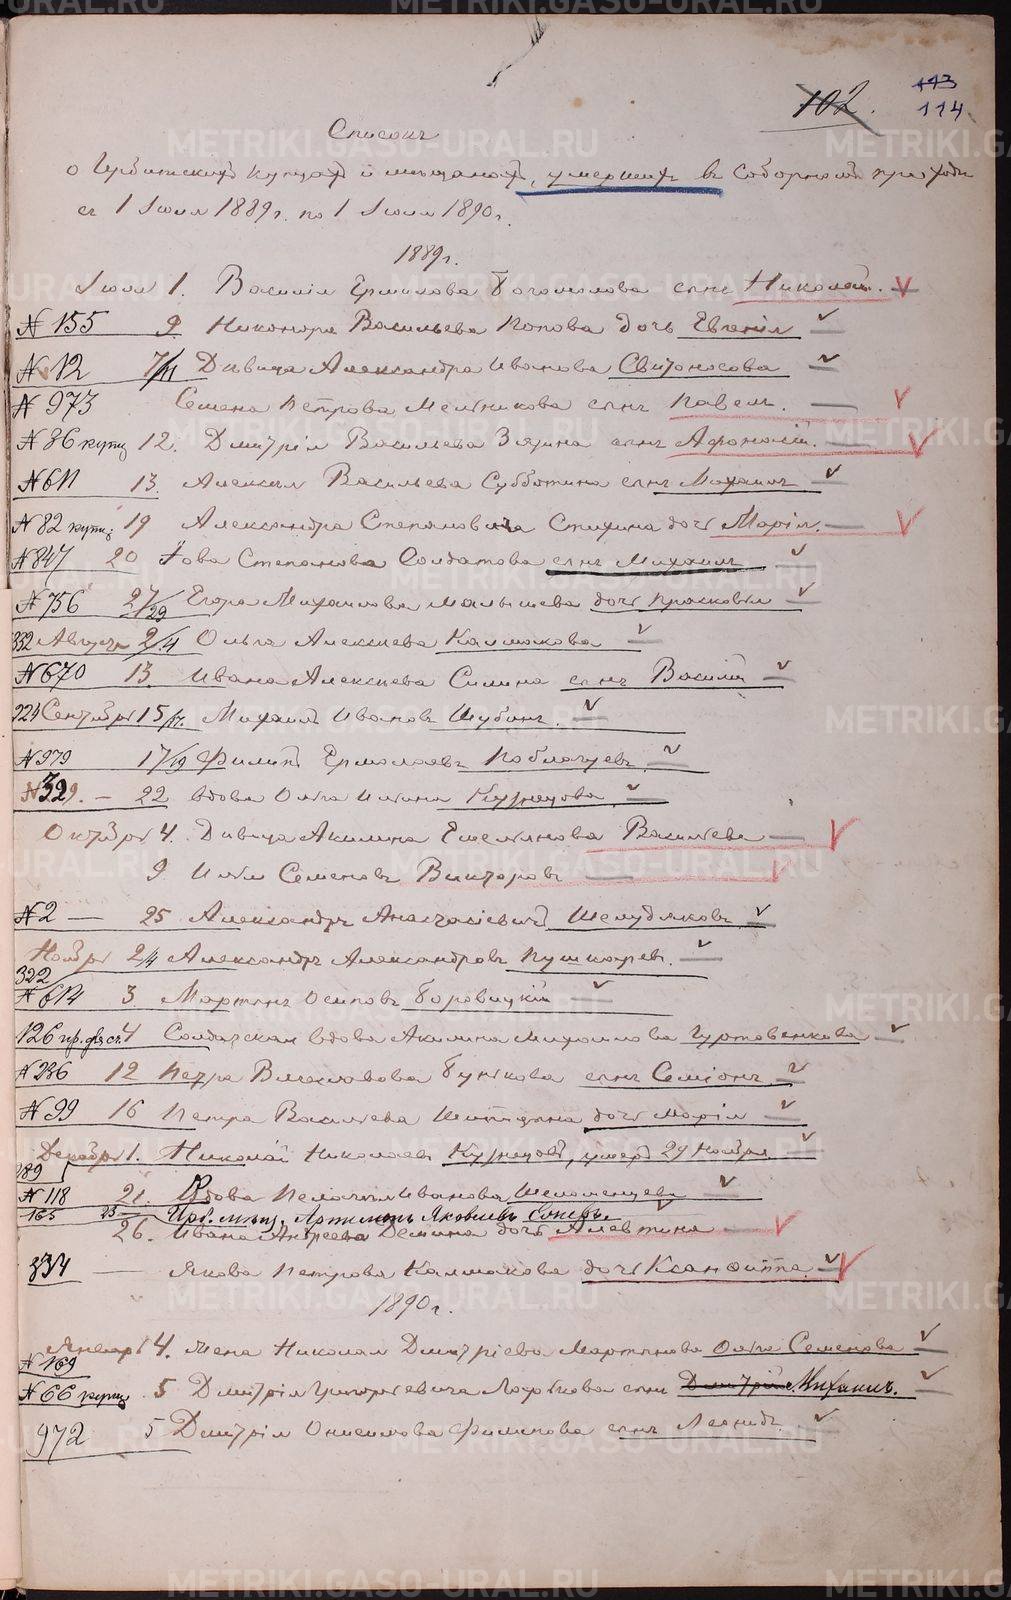 102. 113
114
Списокъ
о Ирбитскихъ купцахъ и мѣщанахъ, умершихъ въ Соборномъ приходѣ
съ 1 Іюля 1889 г. по 1 Іюля 1890 г.
1889 г.
Іюля 1. Василія Ермилова Богомолова сынъ Николай.
№ 155 9. Никонора Васильева Попова дочь Евгенія
№ 12 7/11 Дѣвица Александра Иванова Свѣтоносова
№ 973 Семена Петрова Мельникова сынъ Павелъ.
№ 86 купц 12. Дмитрія Васильева Зязина сынъ Афонасій.
№ 611 13. Алексѣя Васильева Субботина сынъ Михаилъ
№ 82 купц. 19 Александра Степановича Стихина дочь Марія.
№ 847 20 Іова Степанова Солдатова сынъ Михаилъ
№ 756 27/29 Егора Михаилова Малышева дочь Прасковья
332 Августа 2/4 Ольга Алексѣева Калмакова
№ 670 13. Ивана Алексѣева Силина сынъ Василій
924 Сентября 15/17. Михаилъ Ивановъ Шубинъ.
№ 979 17/19 Филипъ Ермолаевъ
№ 329. — 22 вдова Ольга Ильина Кузнецова
Октября 4. Дѣвица Акилина Емельянова Васильева
9 Илья Семеновъ Викторовъ
№ 2 — 25 Александръ Анастасіевичъ Шелудяковъ
Ноября 2/4 Александръ Александровъ Пушкаревъ.
322
№ 614 3. Мартинъ Осиповъ Боровицкій
126 4 Солдатская вдова Акилина Михаилова Чуртовенкова
№ 236 12 Петра Вячеславова Бункова сынъ Семіонъ
№ 99 16 Петра Васильева дочь Марія
Декабря 1. Николай Николаевъ Кузнецовъ, умеръ 29 Ноября
189
№ 118 21. Вдова Пелагея Иванова Шеломенцева
165 23 — Ирб. мѣщ. Артемій Яковлевъ
26. Ивана Андреева Демина дочь Алевтина
334 — Якова Петрова Калмакова дочь Ксанфиппа
1890 г.
Январь 4. Жена Николая Дмитріева Мартьянова Ольга Семенова
№ 169
№ 66 купц 5 Дмитрія Григорьевича сынъ Дмитрій Михаилъ.
972 5 Дмитрія Онисимова Филипова сынъ Леонидъ
METRIKI.GASO-URAL.RU